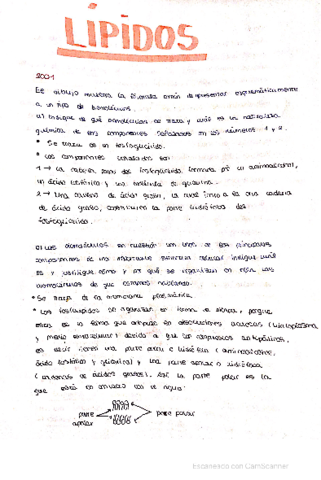 LÍPIDOS
2001
El dibujo muestra la forma común de representar esquemáticamente
a un tipo de biomoléculas.
a) Indique de qué biomoléculas se trata y cuál es la naturaleza
química de los componentes señalados en los números 1 y 2.
* Se trata de un fosfoglicérido.
* Los componentes señalados son:
1 → La cabeza polar del fosfoglicérido, formada por un aminoalcohol,
un ácido fosfórico y una molécula de glicerina.
2 → Una cadena de ácido graso, la cual junto a la otra cadena
de ácido graso, constituyen la parte hidrófoba del
fosfoglicérido.
b) Las biomoléculas en cuestión son unos de los principales
componentes de una importante estructura celular. Indique cuál
es y justifique cómo y por qué se organizan en ella las
biomoléculas de que estamos hablando.
* Se trata de la membrana plasmática.
* Los fosfolípidos se organizan en forma de bicapa, porque
esta es la forma que adoptan en disoluciones acuosas (citoplasma
y medio extracelular) debido a que son compuestos antipáticos,
es decir, tienen una parte polar e hidrófila (aminoalcohol,
ácido fosfórico y glicerina) y una parte apolar o hidrófoba
(cadenas de ácidos grasos). Así, la parte polar es la
que está en contacto con el agua.
parte apolar
parte polar
Escaneado con CamScanner